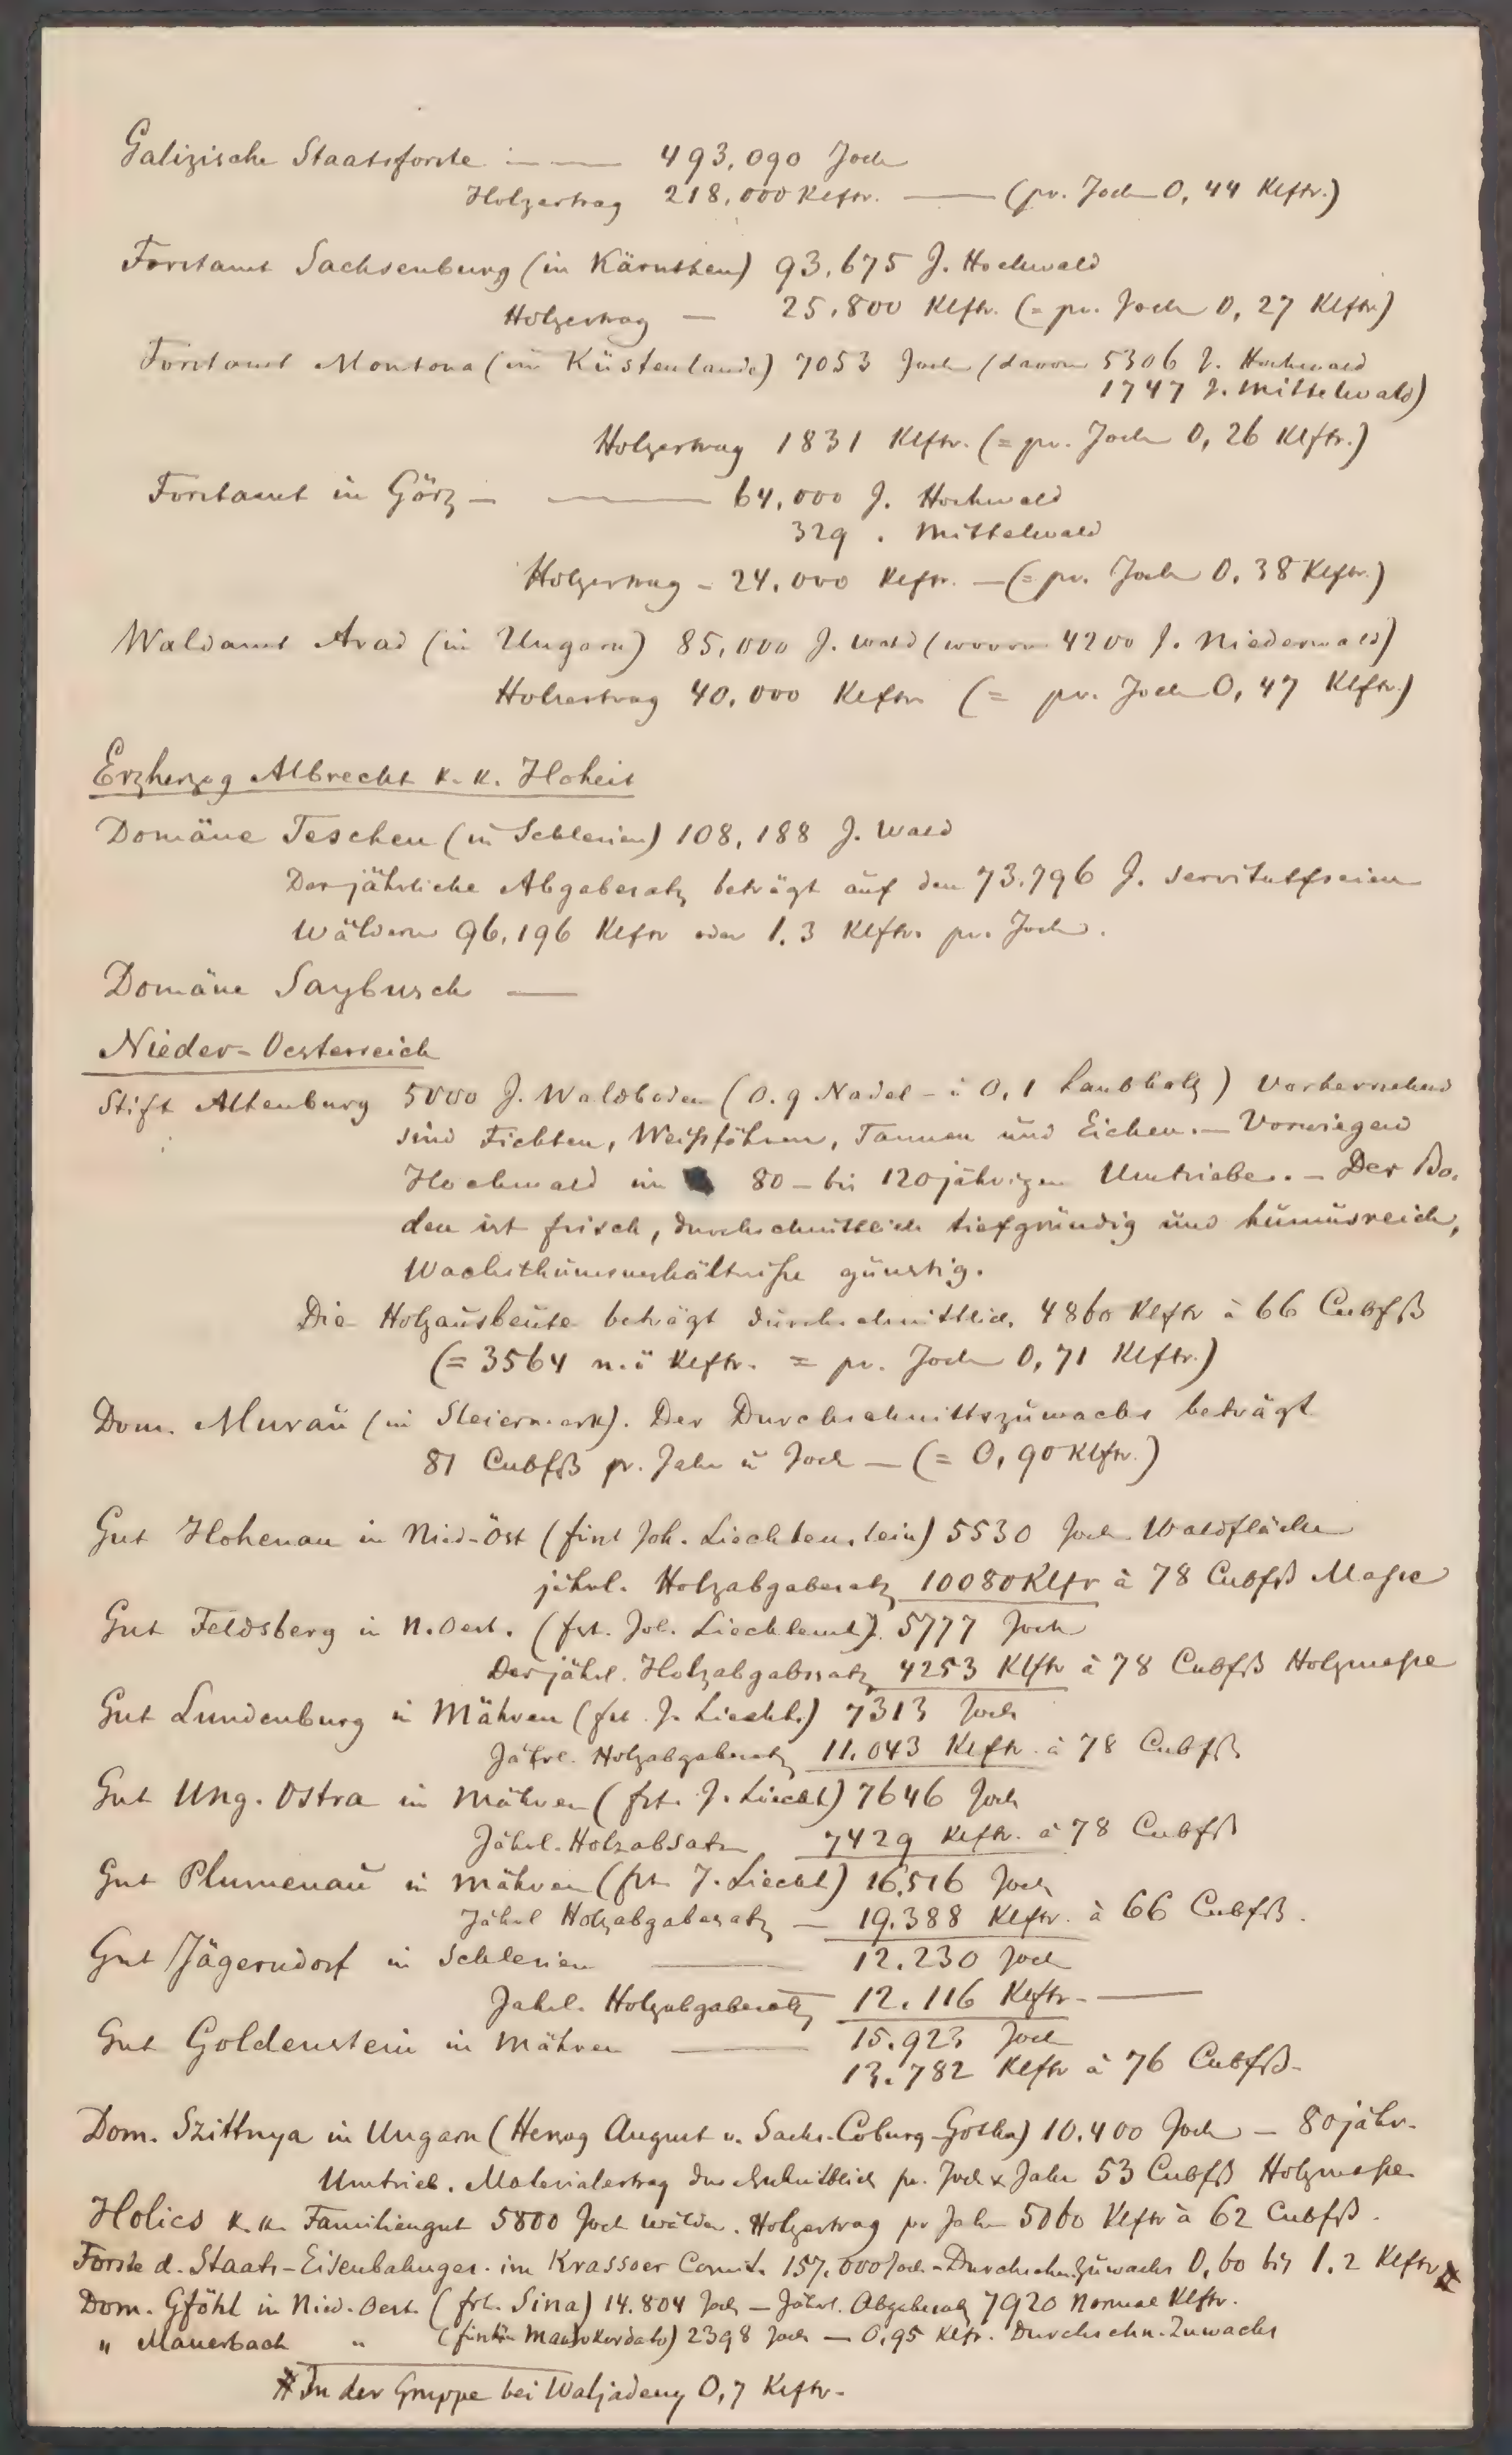 Galizische Staatsforste — 493,090 Joch
Holzertrag 218,000 Klftr. — (pr. Joch 0,44 Klftr.)
Forstamt Sachsenburg (in Kärnthen) 93,675 J. Hochwald
Holzertrag — 25,800 Klftr. (= pr. Joch 0,27 Klftr.)
Forstamt Montona (im Küstenlande) 7053 Joch (davon 5306 J. Hochwald
1747 J. Mittelwald)
Holzertrag 1831 Klftr. (= pr. Joch 0,26 Klftr.)
Forstamt in Görz — 64,000 J. Hochwald
329 . Mittelwald
Holzertrag - 24,000 Klftr. — (= pr. Joch 0.38 Klftr.)
Waldamt Arad (in Ungarn) 85,000 J. Wald (wovon 4200 J. Niederwald)
Holzertrag 40,000 Klftr (= pr. Joch 0,47 Klftr.)
Erzherzog Albrecht k. k. Hoheit
Domäne Teschen (in Schlesien) 108,188 J. Wald
Der jährliche Abgabesatz beträgt auf den 73.796 J. servitutfreien
Wäldern 96,196 Klftr oder 1.3 Klftr. pr. Joch.
Domäne Saybusch —
Nieder-Oesterreich
Stift Altenburg 5000 J. Waldboden (0.9 Nadel- ü 0,1 Laubholz) Vorherrschend
sind Fichten, Weißföhren, Tannen und Eichen. — Vorwiegend
Hochwald im 80 - bis 120jährigen Umtriebe. — Der Bo-
den ist frisch, durchschnittlich tiefgründig und humusreich,
Wachsthumsverhältniße günstig.
Die Holzausbeute beträgt durchschnittlich 4860 Klftr à 66 Cubfß
(= 3564 n.ö Klftr. = pr. Joch 0,71 Klftr.)
Dom. Murau (in Steiermark). Der Durchschnittszuwachs beträgt
81 Cubfß pr. Jahr ü Joch — (= 0,90 Klftr.)
Gut Hohenau in Nied-Öst (fürst Joh. Liechtenstein) 5530 Joch Waldfläche
jährl. Holzabgabesatz 10080 Klftr à 78 Cubfß Maße
Gut Feldsberg in N.Oest. (frt. Joh. Liechtenst.) 5777 Joch
Der jährl. Holzabgabssatz 4253 Klftr à 78 Cubfß Holzmaße
Gut Lundenburg in Mähren (frt. J. Liecht.) 7313 Joch
Jährl. Holzabgabesatz 11.043 Klftr. à 78 Cubfß
Gut Ung. Ostra in Mähren (frt. J. Liecht) 7646 Joch
Jährl. Holzabsatz 7429 Klftr. à 78 Cubfß
Gut Plumenau in Mähren (frt. J. Liecht) 16,516 Joch
Jährl Holzabgabesatz — 19.388 Klftr. à 66 Cubfß.
Gut Jägerndorf in Schlesien — 12.230 Joch
Jährl. Holzabgabesatz 12.116 Klftr. —
Gut Goldenstein in Mähren — 15.923 Joch
13.782 Klftr à 76 Cubfß-
Dom. Szittnya in Ungarn (Herzog August v. Sachs. Coburg-Gotha) 10.400 Joch — 80jähr.
Umtrieb. Materialertrag durchschnittlich pr. Joch & Jahr 53 Cubfß Holzmaße.
Holics k. k. Familiengut 5800 Joch Wälder. Holzertrag pr Jahr 5060 Klftr à 62 Cubfß.
Forste d. Staats-Eisenbahnges. im Krassoer Comit. 157.000 Joch - Durchschn. Zuwachs 0,60 bis 1.2 Klftr #
Dom. Gföhl in Nied. Oest. (frh. Sina) 14.804 Joch — Jährl. Abgabesatz 7920 Normal Klftr.
" Mauerbach " (fürstin Maurokordato) 2398 Joch — 0,95 Klftr. Durchschn. Zuwachs
# In der Gruppe bei 0,7 Klftr.